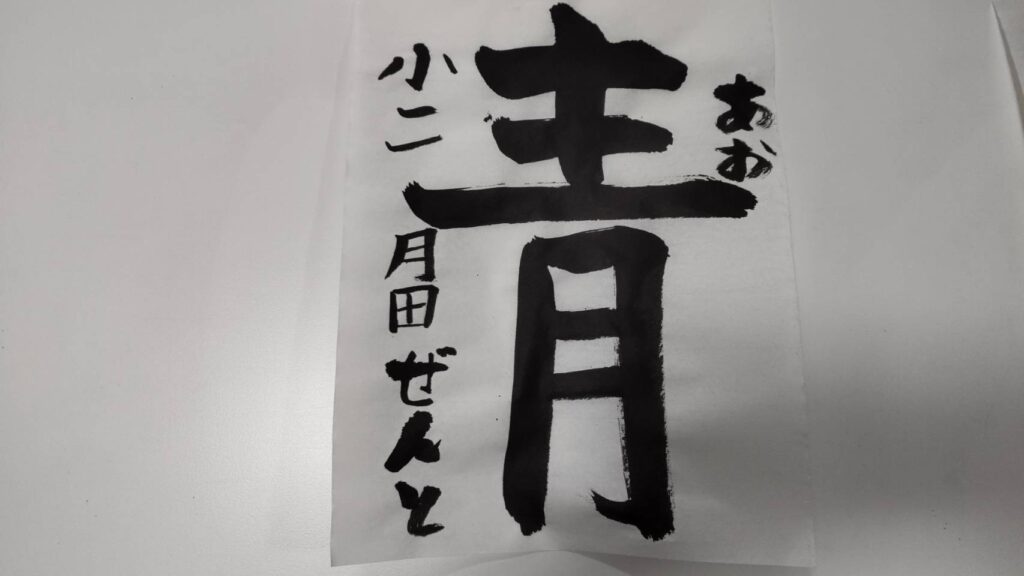 あお
青
小二 月田ぜんと